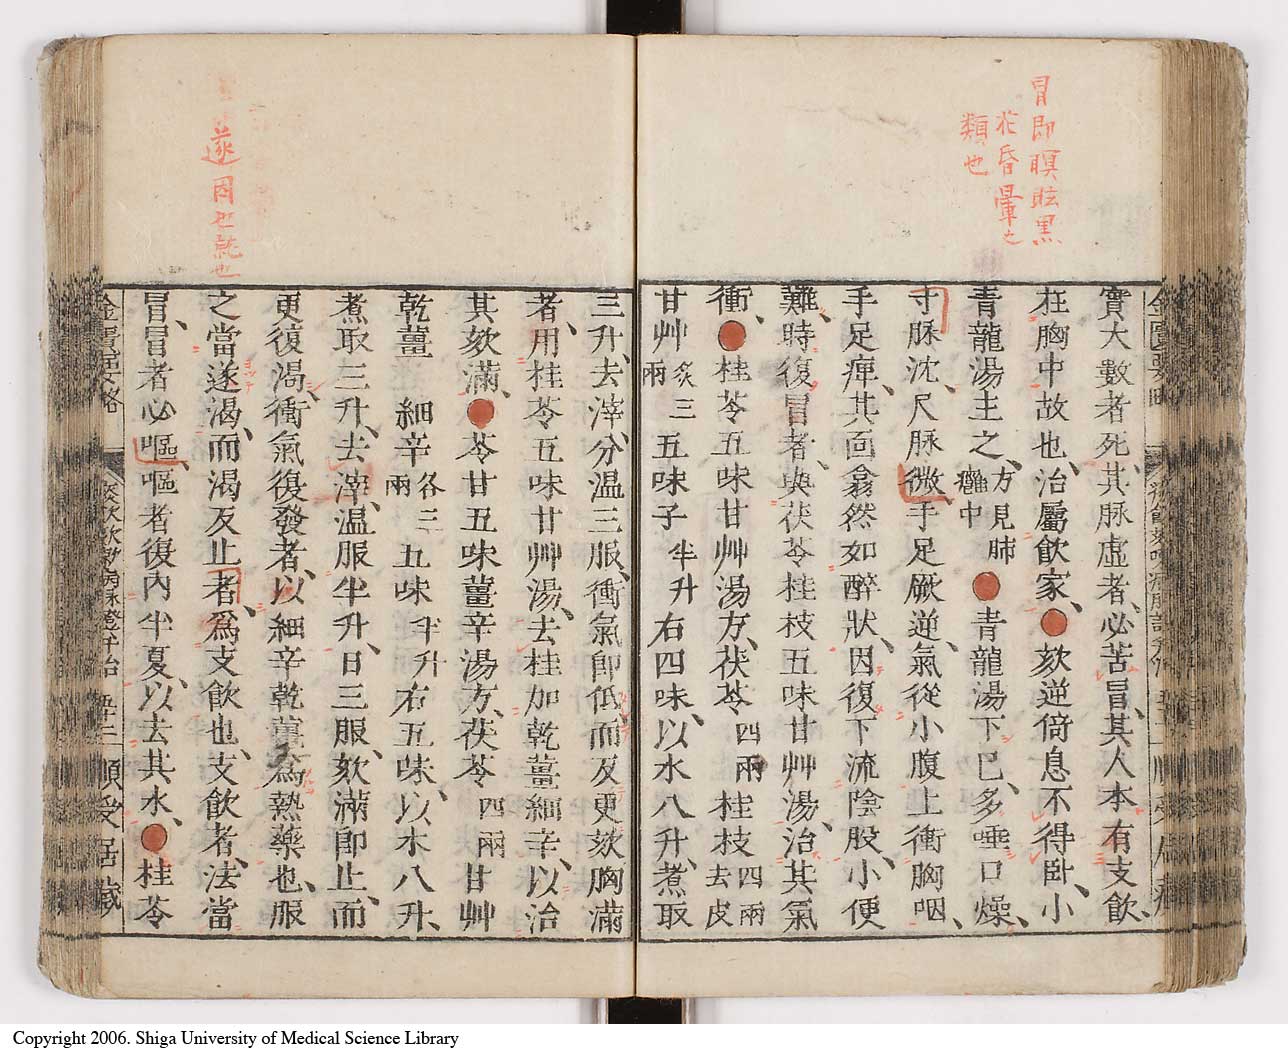 冒即瞑眩黒
花昏暈之
類也
實大數者死、其脉虛者、必苦冒、其人本有支飮、
在胸中故也、治屬飮家、●欬逆倚息不得臥、小
青龍湯主之、方見肺癰中●青龍湯下已、多唾口燥、
寸脉沈、尺脉微、手足厥逆、氣從小腹上衝胸咽、
手足痺、其面翕然如醉狀、因復下流陰股、小便
難、時復冒者、與茯苓桂枝五味甘艸湯、治其氣
衝、●桂苓五味甘艸湯方、茯苓四兩桂枝四兩去皮
甘艸炙三兩五味子半升右四味、以水八升、煮取
遂因也就也
三升、去滓、分溫三服、衝氣即低而反更欬胸滿
者、用桂苓五味甘艸湯、去桂加乾薑細辛、以治
其欬滿、●苓甘五味薑辛湯方、茯苓四兩甘艸
乾薑 細辛各三兩五味半升右五味、以水八升、
煮取三升、去滓、溫服半升、日三服、欬滿即止、而
更復渴、衝氣復發者、以細辛乾薑爲熱藥也、服
之當遂渴、而渴反止者、爲支飮也、支飮者、法當
冒、冒者必嘔、嘔者復內半夏、以去其水、●桂苓
金匱要略 痰飮欬嗽病脉證并治 五十三 順受居藏
Copyright 2006. Shiga University of Medical Science Library